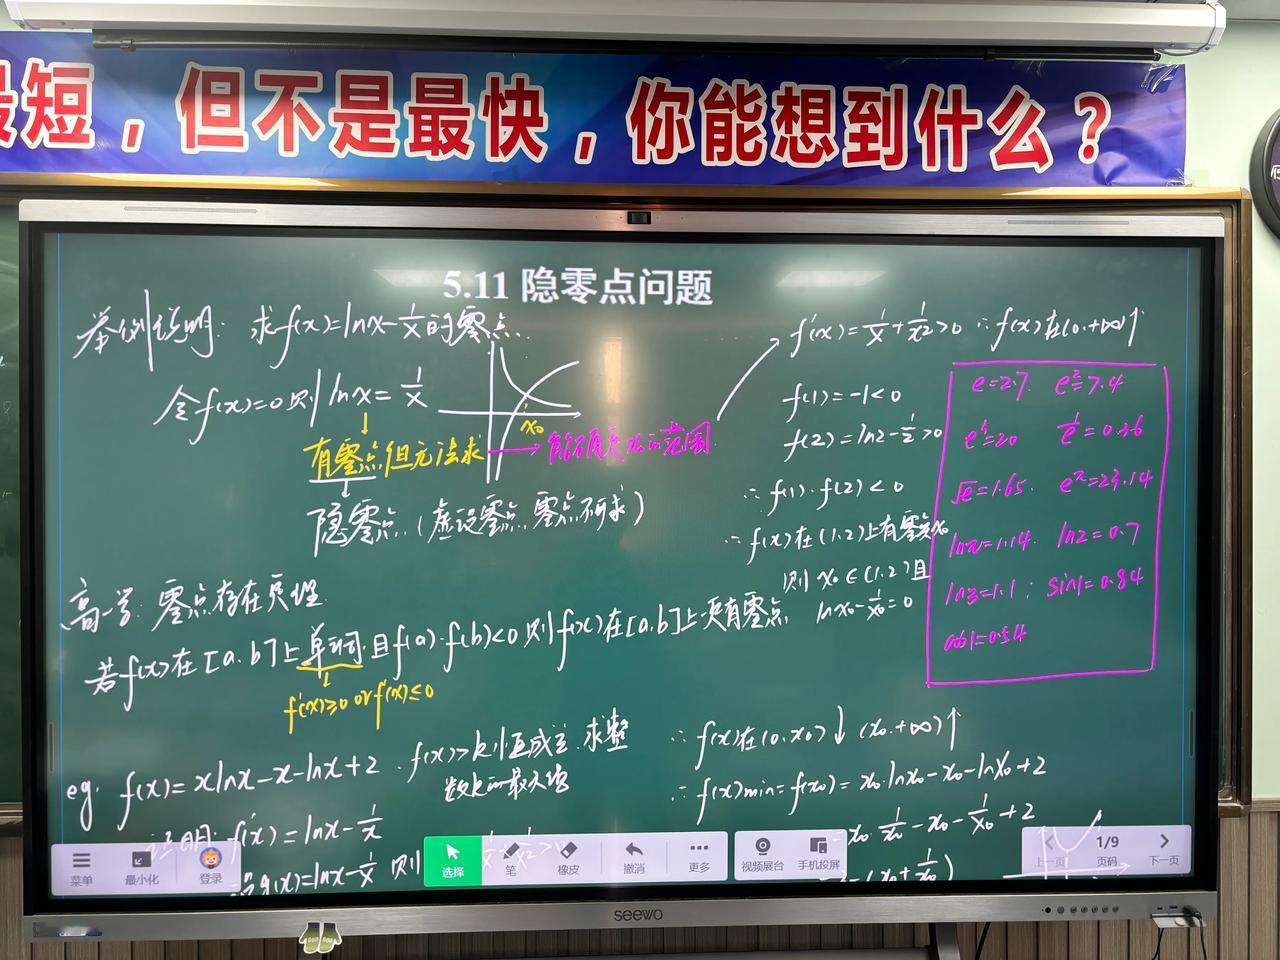 最短，但不是最快，你能想到什么？
5.11 隐零点问题
举例说明: 求f(x)=lnx-1/x的零点.
令f(x)=0则lnx=1/x
有零点但无法求
x₀
隐零点(虚设零点,零点不可求)
f'(x)=1/x+1/x²>0 ∴f(x)在(0.+∞)↑
f(1)=-1<0
f(2)=ln2-1/2>0
∴f(1)·f(2)<0
∴f(x)在(1.2)上有零点x₀
则x₀∈(1.2)且
lnx₀-1/x₀=0
e=2.7 e²=7.4
e³=20 1/e=0.36
√e=1.65. e^π=23.14
lnπ=1.14. ln2=0.7
ln3=1.1; sin1=0.84
cos1=0.54
高一学: 零点存在定理
若f(x)在[a.b]上单调,且f(a)·f(b)<0则f(x)在[a.b]上必有零点
f'(x)≥0 or f'(x)≤0
eg. f(x)=xlnx-x-lnx+2. f(x)>k恒成立.求整
数k的最大值
证明: f'(x)=lnx-1/x
g(x)=lnx-1/x 则
∴f(x)在(0.x₀)↓ (x₀.+∞)↑
∴f(x)min=f(x₀)=x₀·lnx₀-x₀-lnx₀+2
x₀·1/x₀-x₀-1/x₀+2
(x₀+1/x₀)
菜单
最小化
登录
选择
笔
橡皮
撤消
更多
视频展台
手机投屏
上一页
1/9
页码
下一页
seewo